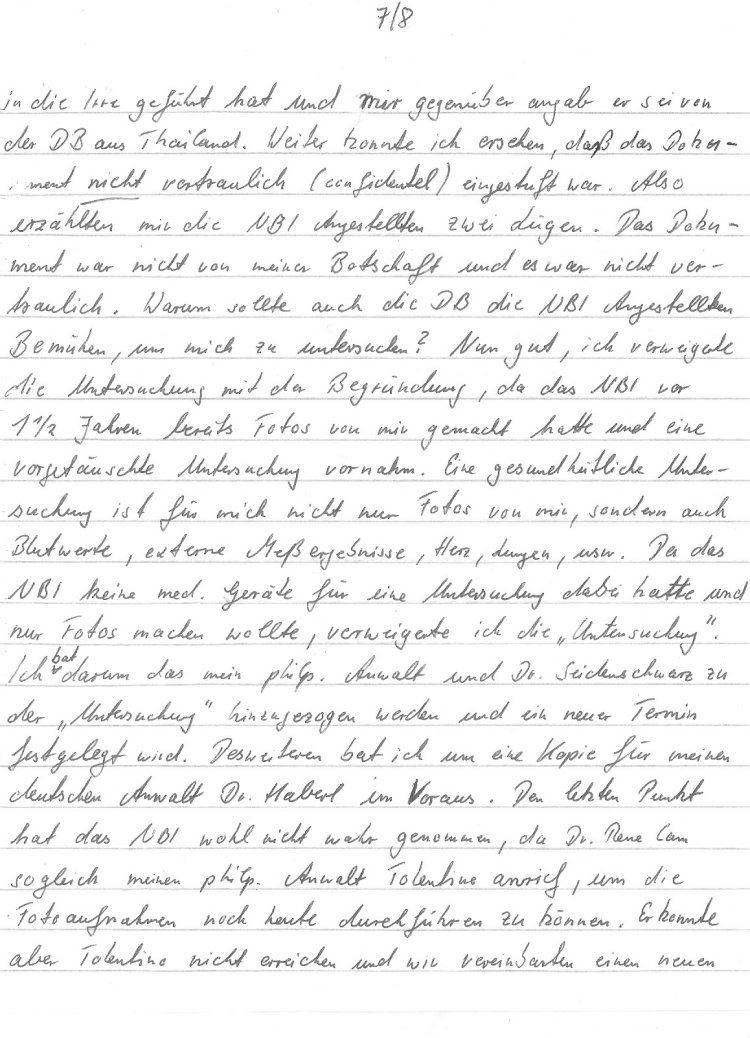 7/8
in die Irre geführt hat und mir gegenüber angab er sei von
der DB aus Thailand. Weiter konnte ich ersehen, daß das Doku-
ment nicht vertraulich (confidentel) eingestuft war. Also
erzählten mir die NBI Angestellten zwei Lügen. Das Doku-
ment war nicht von meiner Botschaft und es war nicht ver-
traulich. Warum sollte auch die DB die NBI Angestellten
Bemühen, um mich zu untersuchen? Nun gut, ich verweigerte
die Untersuchung mit der Begründung, da das NBI vor
1 1/2 Jahren bereits Fotos von mir gemacht hatte und eine
vorgetäuschte Untersuchung vornahm. Eine gesundheitliche Unter-
suchung ist für mich nicht nur Fotos von mir, sondern auch
Blutwerte, externe Meßergebnisse, Herz, Lungen, usw. Da das
NBI keine med. Geräte für eine Untersuchung dabei hatte und
nur Fotos machen wollte, verweigerte ich die „Untersuchung".
Ich bat darum das mein philp. Anwalt und Dr. Seidenschwarz zu
der „Untersuchung" hinzugezogen werden und ein neuer Termin
festgelegt wird. Desweiteren bat ich um eine Kopie für meinen
deutschen Anwalt Dr. Haberl im Voraus. Den letzten Punkt
hat das NBI wohl nicht wahr genommen, da Dr. Rene Cam
sogleich meinen philp. Anwalt Tolentino anrief, um die
Fotoaufnahmen noch heute durchführen zu können. Er konnte
aber Tolentino nicht erreichen und wir vereinbarten einen neuen